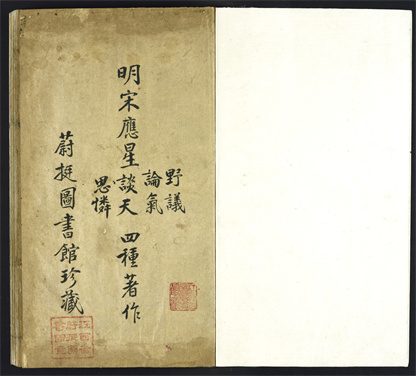 野議
論氣
明宋應星談天四種著作
思憐
蔚挺圖書館珍藏